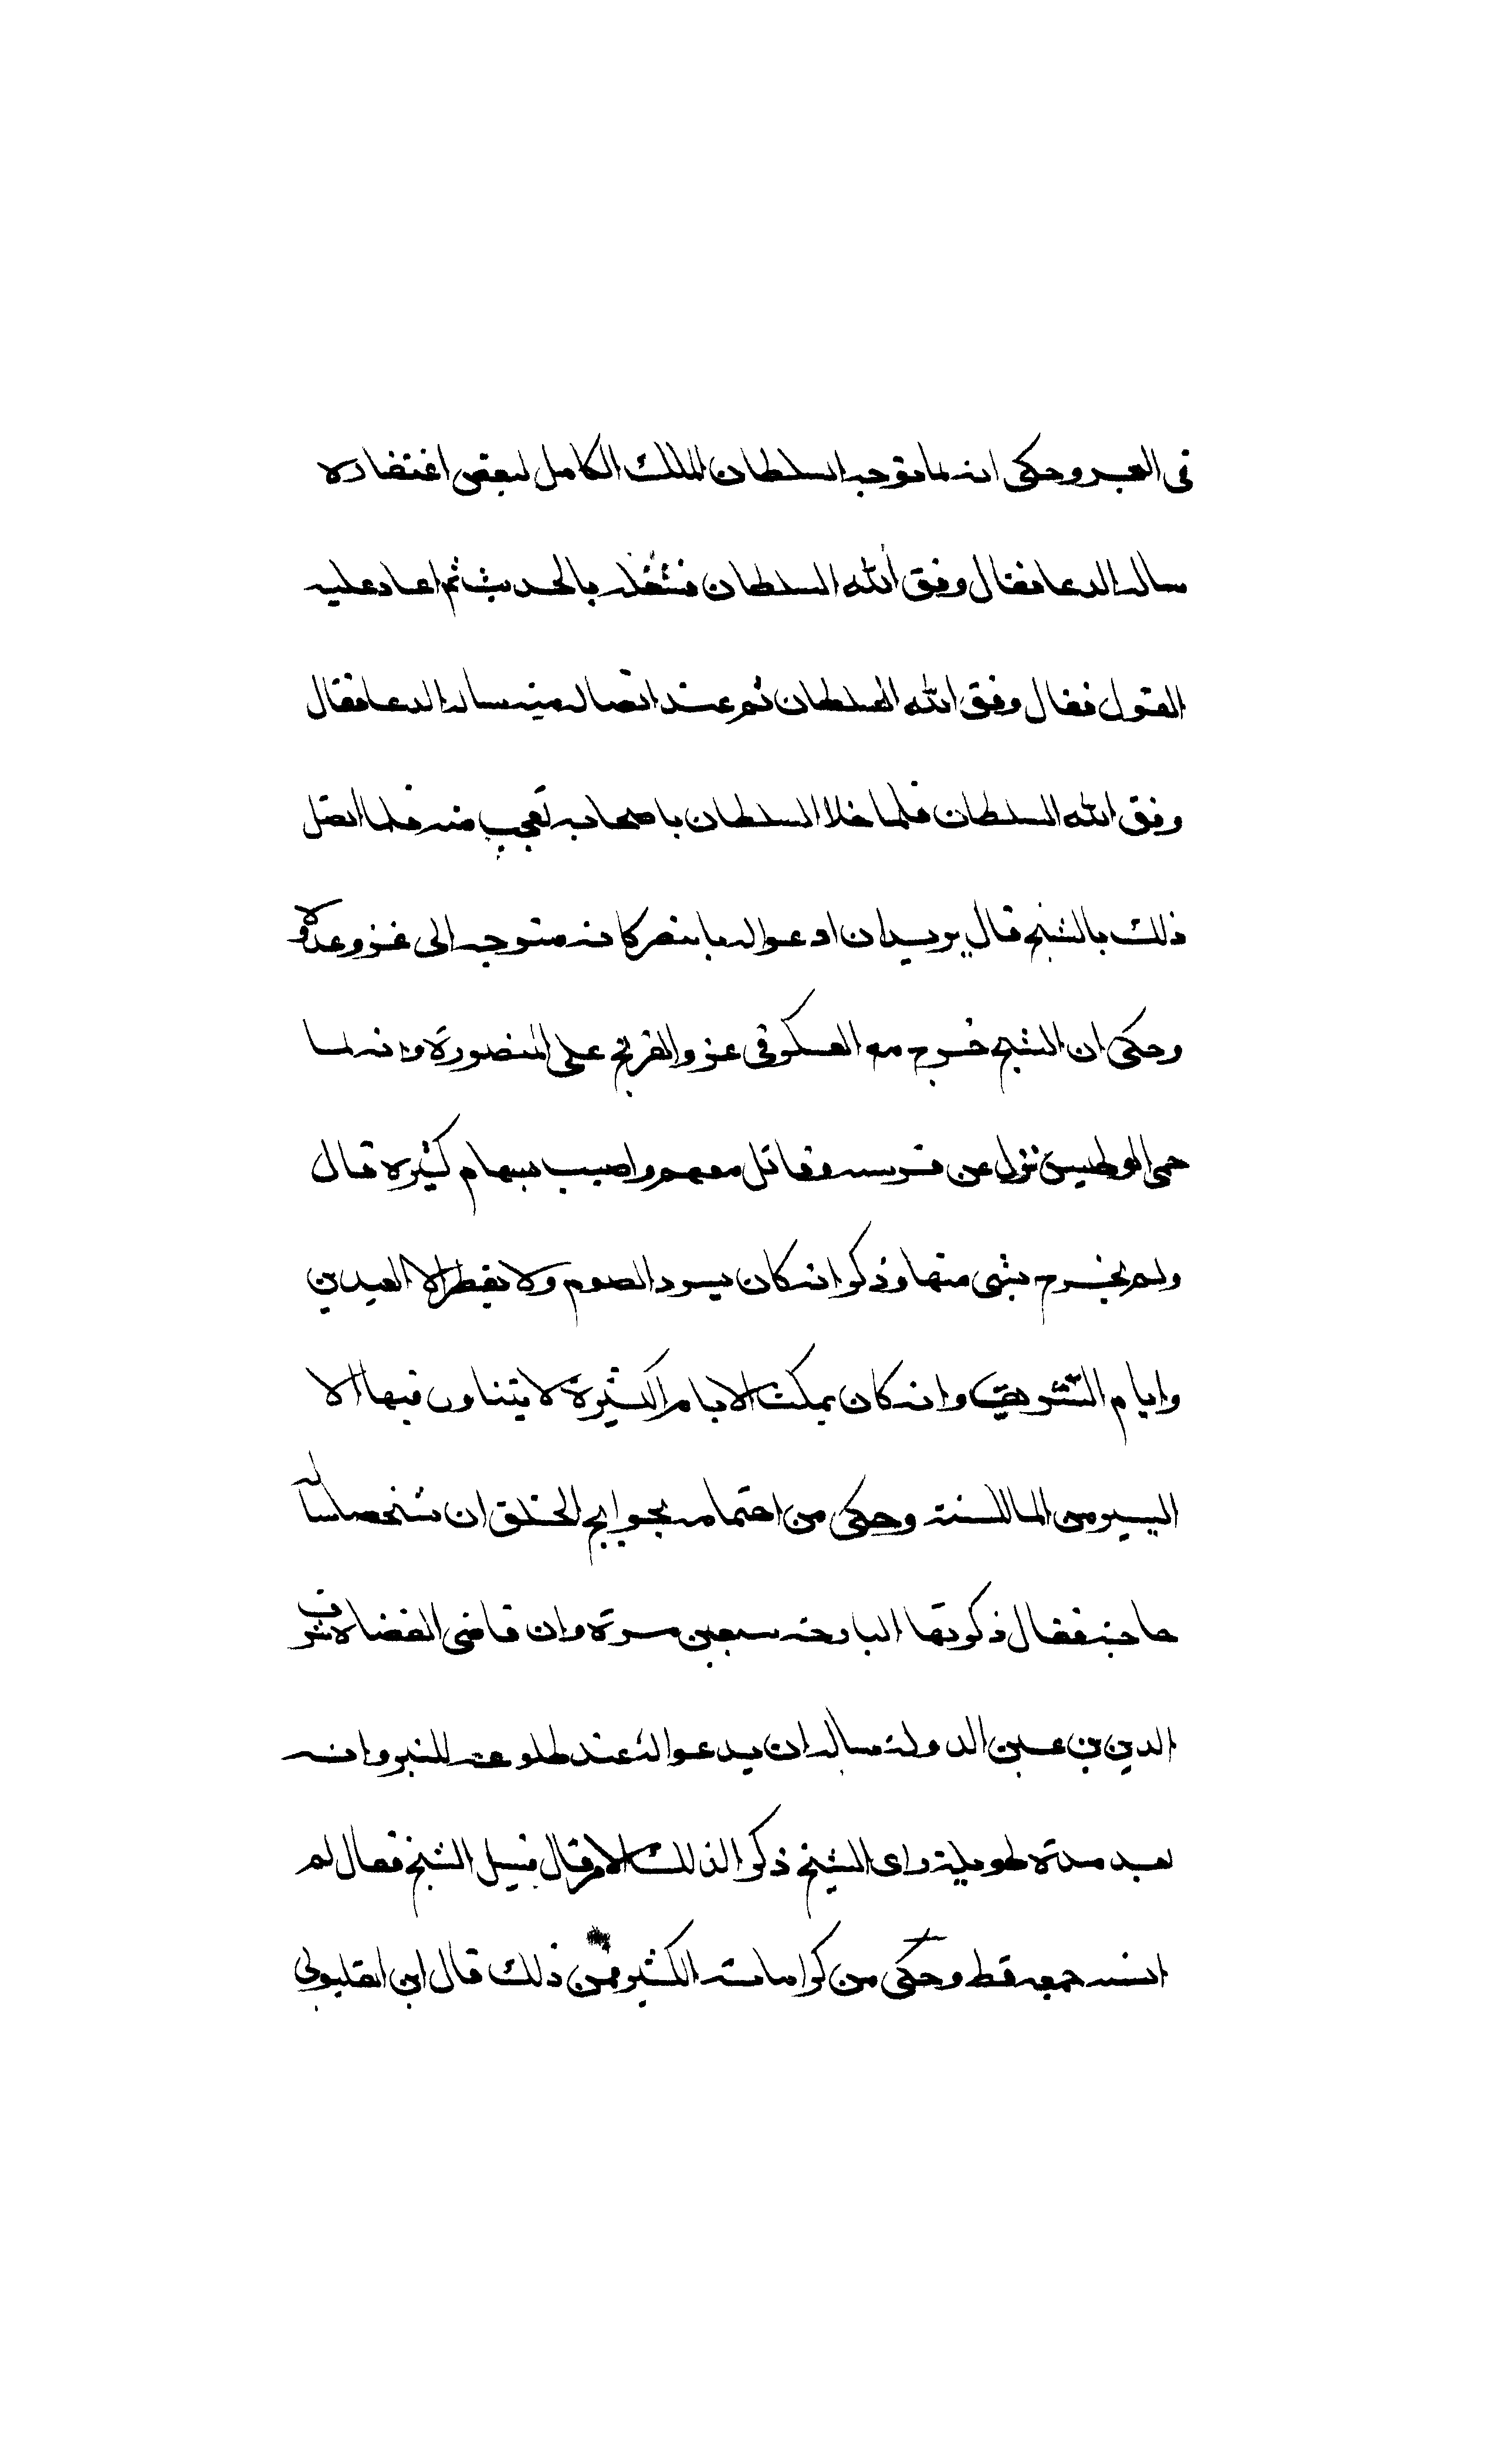 في العبر وحكى انه لما توجه السلطان الملك الكامل لبعض اغتضاره
ساله الدعا فقال وفق الله السلطان فشغله بالحديث ثم اعاد عليه
القول فقال وفق الله السلطان ثم عند انصاله منه ساله الدعا فقال
وفق الله السلطان فلما خلا السلطان باصحابه تعجب منه فلما اتصل
ذلك بالشيخ قال يريد ان ادعوا له بالنصر كانه متوجه الى غزو عدو لا
وحكى ان الشيخ خرج مع العسكر في غزو الفرنج على المنصورة وانه لما
حمى الوطيس نزل عن فرسه وقاتل معهم واصيب بسهام كثيرة قال
ولم يخرج بشي منها وذكر انه كان يسرد الصوم ولا يفطر الا العيدين
وايام التشريق وانه كان يمكث الايام الكثيرة لا يتناول فيها الا
اليسير من الما للسنة وحكى من اهتمامه بحوايج الخلق ان شخصا ساله
حاجة فقال ذكرتها البارحة سبعين مرة وان قاضي القضاة شرف
الدين بن عين الدولة ساله ان يدعوا له عند طلوعه للمنبر وانه
بعد مدة طويلة راى الشيخ ذكر الذلك الامر قال فسيل الشيخ فقال لم
انسه جمعه قط وحكى من كراماته الكثير فمن ذلك قال ابن القليوبي